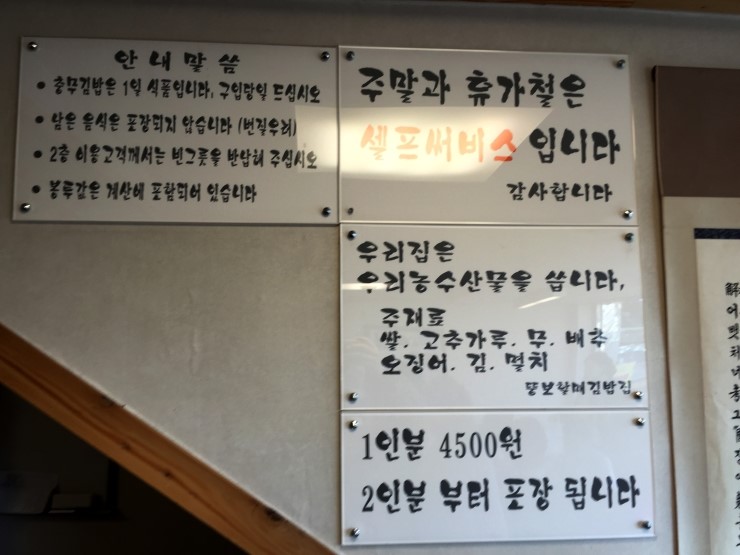 안내말씀
• 충무김밥은 1일 식품입니다, 구입당일 드십시오
• 남은 음식은 포장되지 않습니다 (변질우려)
• 2층 이용고객께서는 빈그릇을 반납해 주십시오
• 봉투값은 계산에 포함되어 있습니다
주말과 휴가철은
셀프써비스 입니다
감사합니다
우리집은
우리농수산물을 씁니다,
주재료
쌀. 고추가루. 무. 배추
오징어. 김. 멸치
뚱보할매김밥집
1인분 4500원
2인분 부터 포장 됩니다